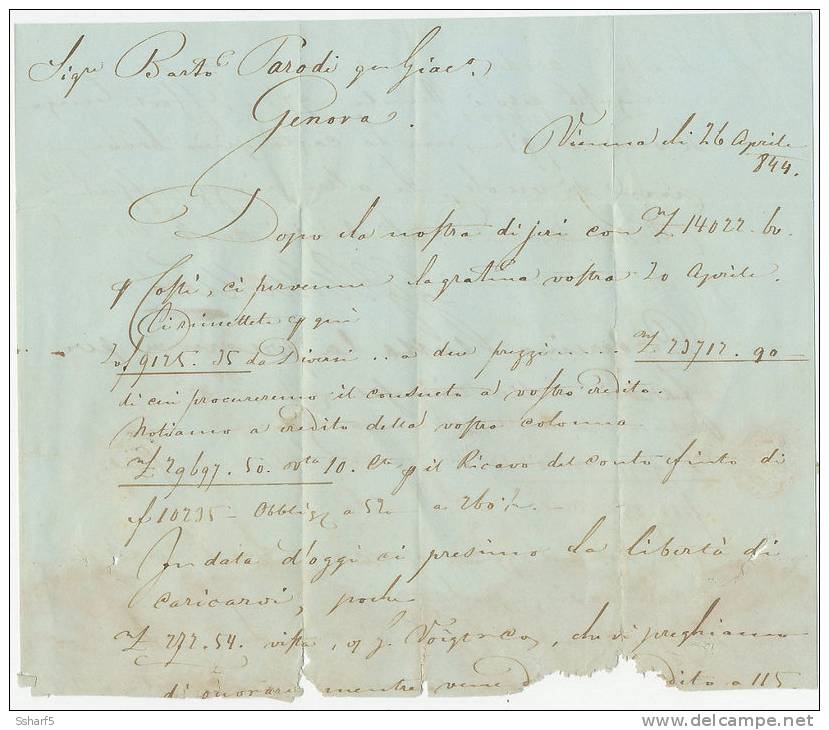 Sigr Barto Parodi qm Giac.o
Genova.
Vienna li 26 Aprile
844.
Dopo la nostra di jeri con 14022. 60.
Costi, ci pervenne la gratma vostra 20 Aprile.
Ci rimettete qui
f 9125. 35 da Diversi .. a due prezzi ... 23712. 90
di cui procureremo il consueto a vostro credito.
Notiamo a credito della vostra colonna
29697. 50. 10. il Ricavo del conto finto di
f 10235 – a 5% a 260
In data d'oggi ci presimo la libertà di
caricarvi, poche
272. 54. vista, Voigt & Co, che vi preghiamo
di onorare mentre a 115
Ssharf5